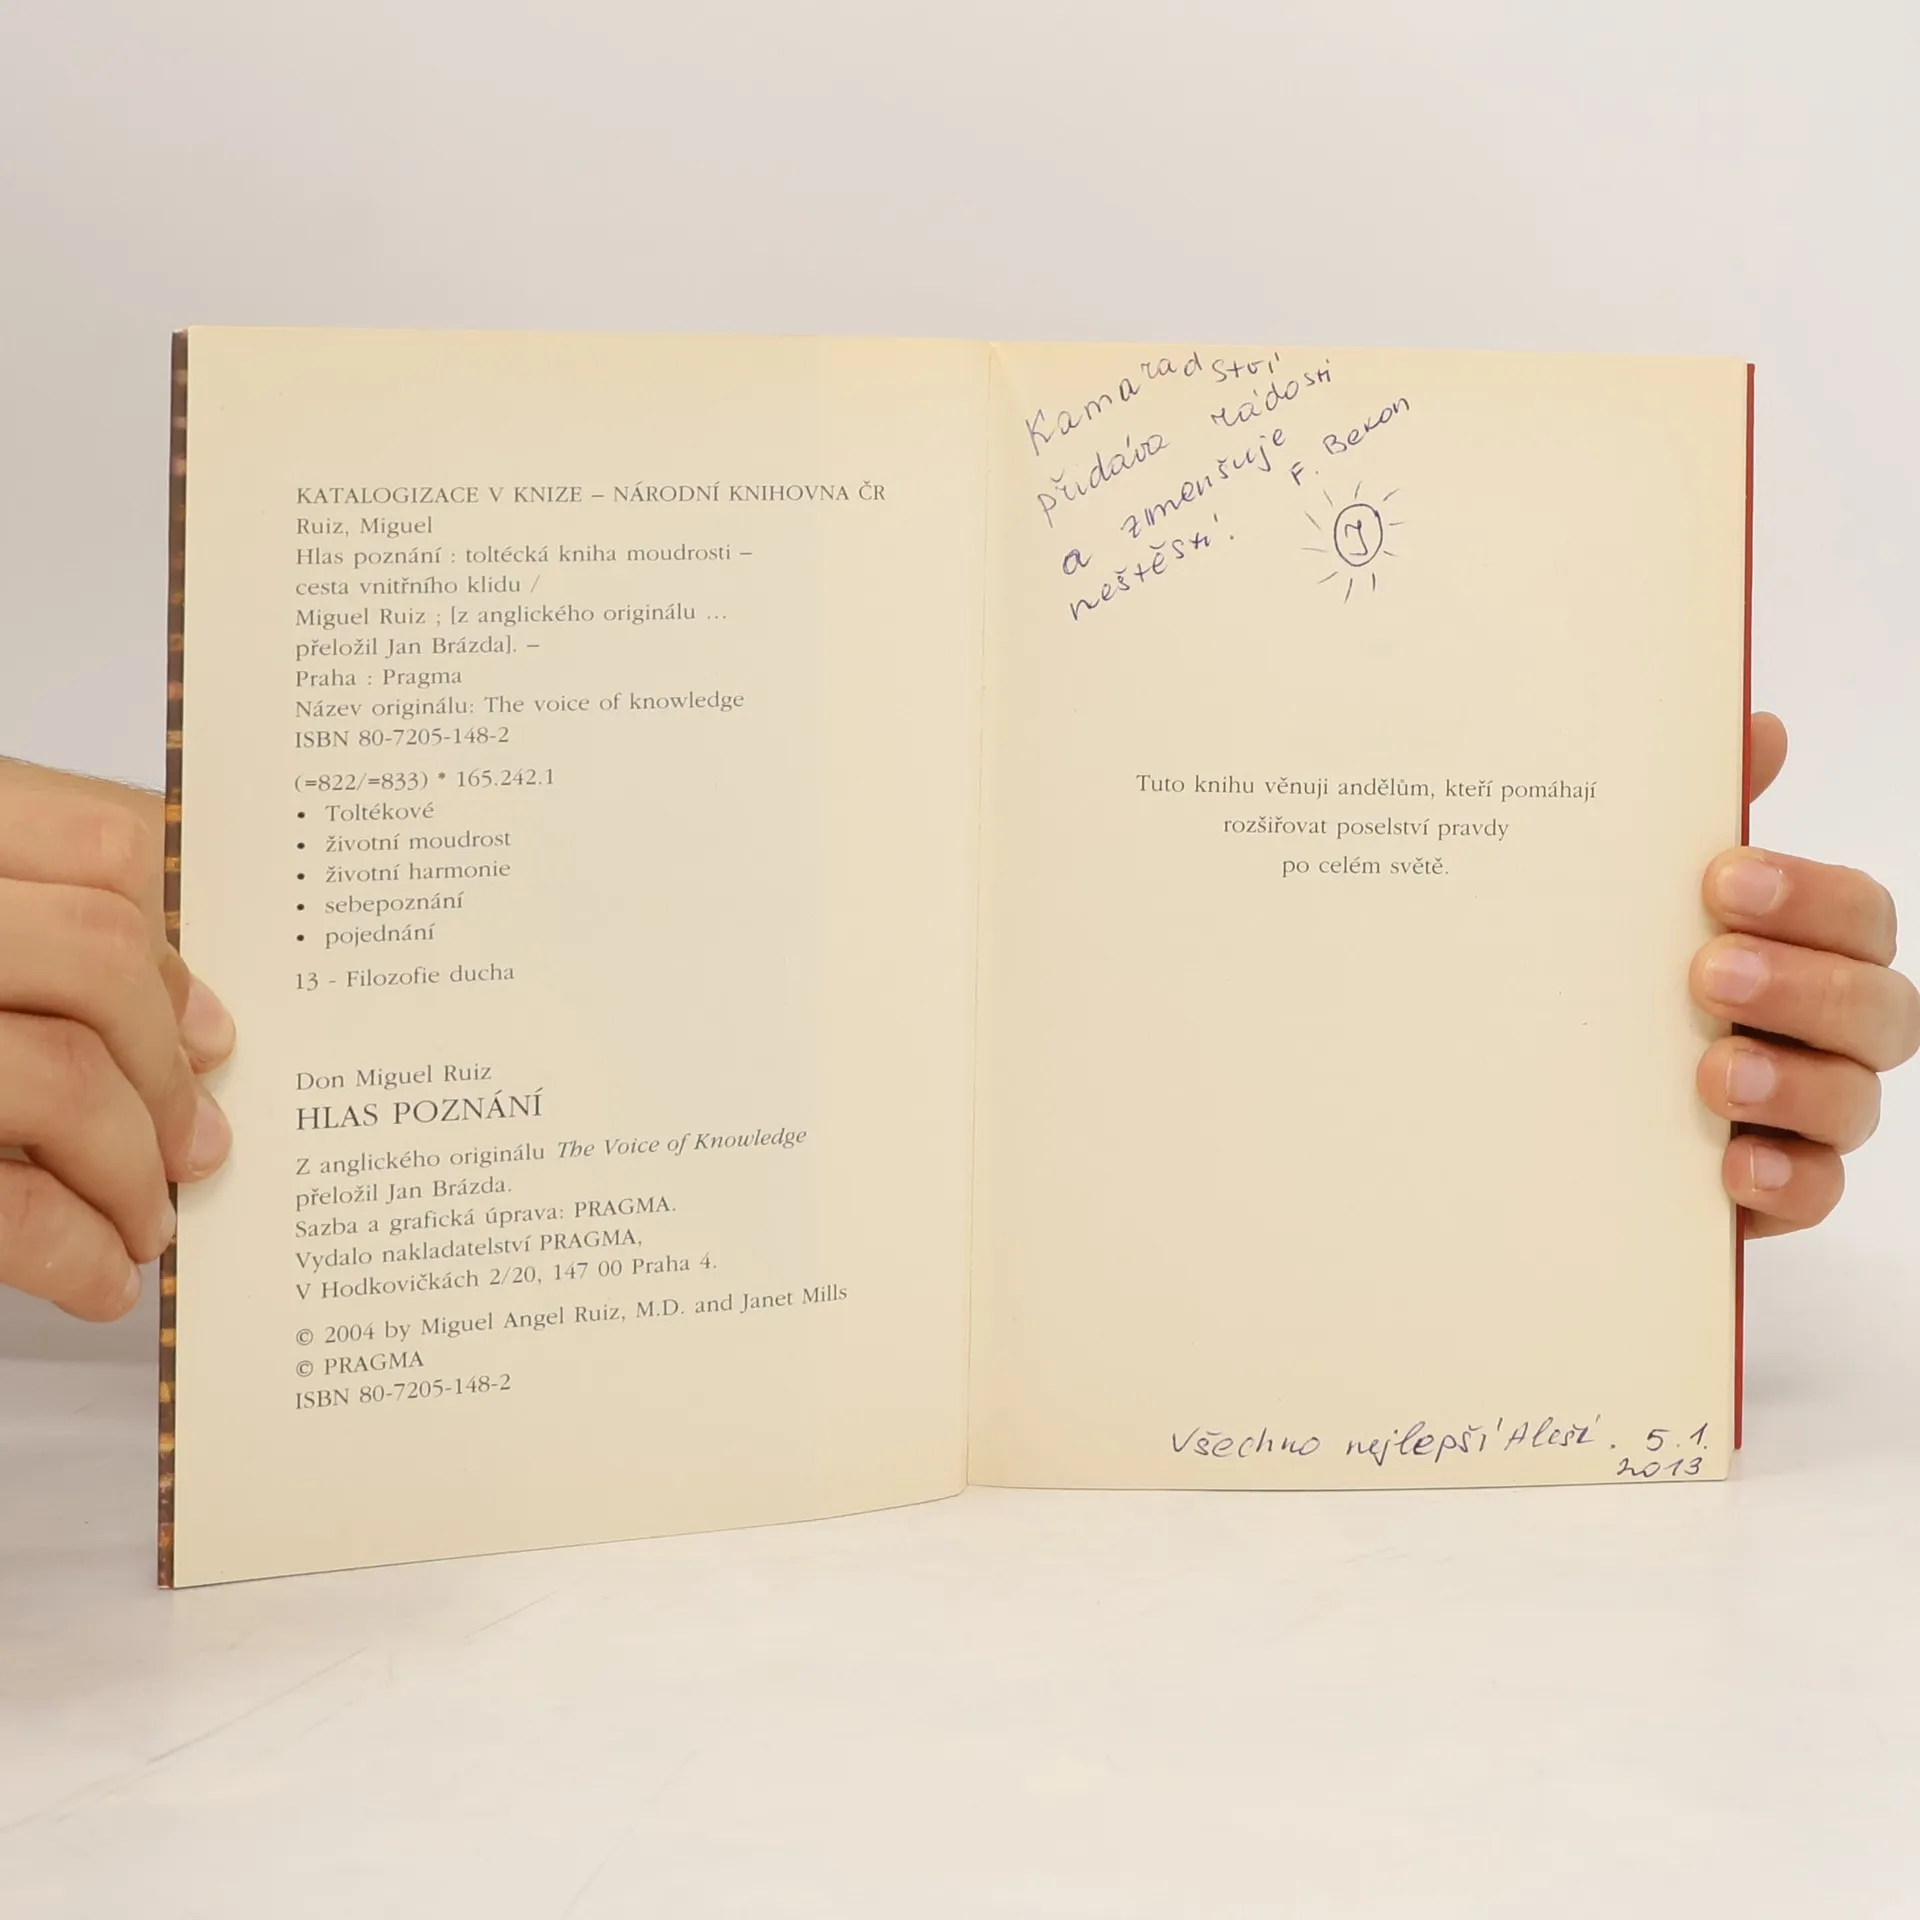 KATALOGIZACE V KNIZE – NÁRODNÍ KNIHOVNA ČR
Ruiz, Miguel
Hlas poznání : toltécká kniha moudrosti –
cesta vnitřního klidu /
Miguel Ruiz ; [z anglického originálu ...
přeložil Jan Brázda]. –
Praha : Pragma
Název originálu: The voice of knowledge
ISBN 80-7205-148-2
(=822/=833) * 165.242.1
• Toltékové
• životní moudrost
• životní harmonie
• sebepoznání
• pojednání
13 - Filozofie ducha
Don Miguel Ruiz
HLAS POZNÁNÍ
Z anglického originálu The Voice of Knowledge
přeložil Jan Brázda.
Sazba a grafická úprava: PRAGMA.
Vydalo nakladatelství PRAGMA,
V Hodkovičkách 2/20, 147 00 Praha 4.
© 2004 by Miguel Angel Ruiz, M.D. and Janet Mills
© PRAGMA
ISBN 80-7205-148-2
Kamarádství
přidává rádosti
a zmenšuje
neštěstí.
F. Bekon
J
Tuto knihu věnuji andělům, kteří pomáhají
rozšiřovat poselství pravdy
po celém světě.
Všechno nejlepší Aleši. 5.1.
2013